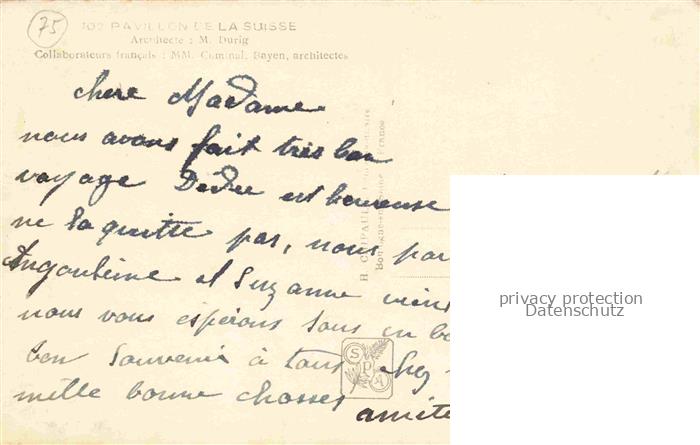 75
102 PAVILLON DE LA SUISSE
Architecte : M. Durig
Collaborateurs français : MM. Cuminal, Bayen, architectes
chere Madame
nous avons fait très bon
voyage Dédée est heureuse
ne la quitte pas, nous par
Angoulème et Suzanne vient
nous vous espérons tous en bo
bon souvenir à tous chez
mille bonne chosses
amitié
R. CHIPAULT
Boulogne-sur-Seine France
SPA
privacy protection
Datenschutz